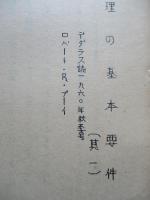 理の基本要件
(其二)
デダラス誌一九六〇年秋季号
ロバート・R・ブーイ